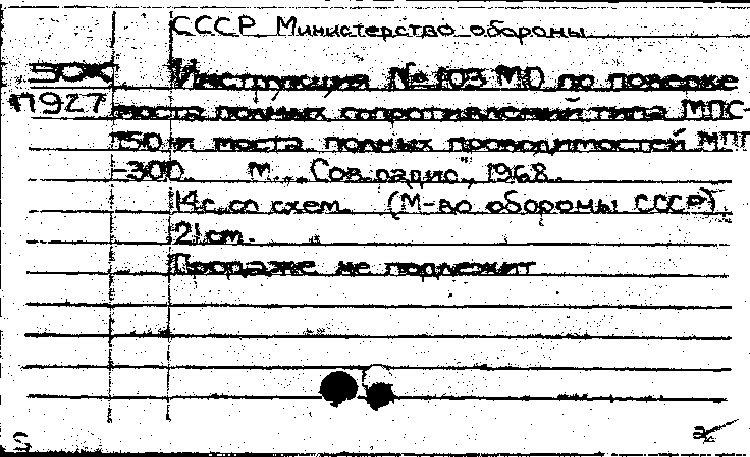 СССР Министерство обороны
30К Инструкция № 103 МО по поверке
П927 моста полных сопротивлений типа МПС-
150 и моста полных проводимостей МПП
-300. М., "Сов. радио", 1968.
14с. со схем. (М-во обороны СССР).
21 см.
Продаже не подлежит